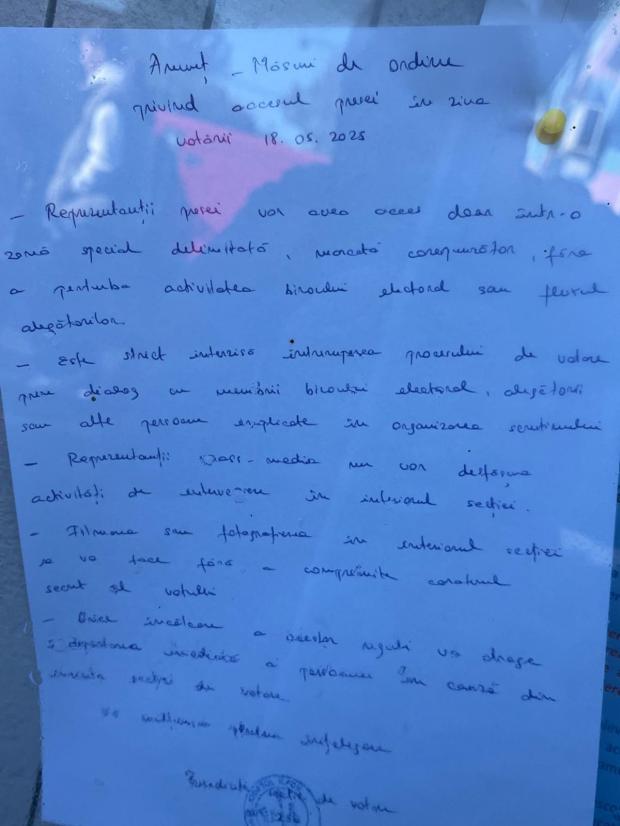 Anunț - Măsuri de ordine
privind accesul presei în ziua
votării 18.05.2025
- Reprezentanții presei vor avea acces doar într-o
zonă special delimitată, marcată corespunzător, fără
a perturba activitatea biroului electoral sau fluxul
alegătorilor.
- Este strict interzisă întreruperea procesului de votare
prin dialog cu membrii biroului electoral, alegători
sau alte persoane implicate în organizarea scrutinului
- Reprezentanții mass-media nu vor desfășura
activități de intervievare în interiorul secției.
- Filmarea sau fotografierea în interiorul secției
se va face fără a compromite caracterul
secret al votului
- Orice încălcare a acestor reguli va atrage
îndepărtarea imediată a persoanei în cauză din
incinta secției de votare.
Vă mulțumim pentru înțelegere
de votare